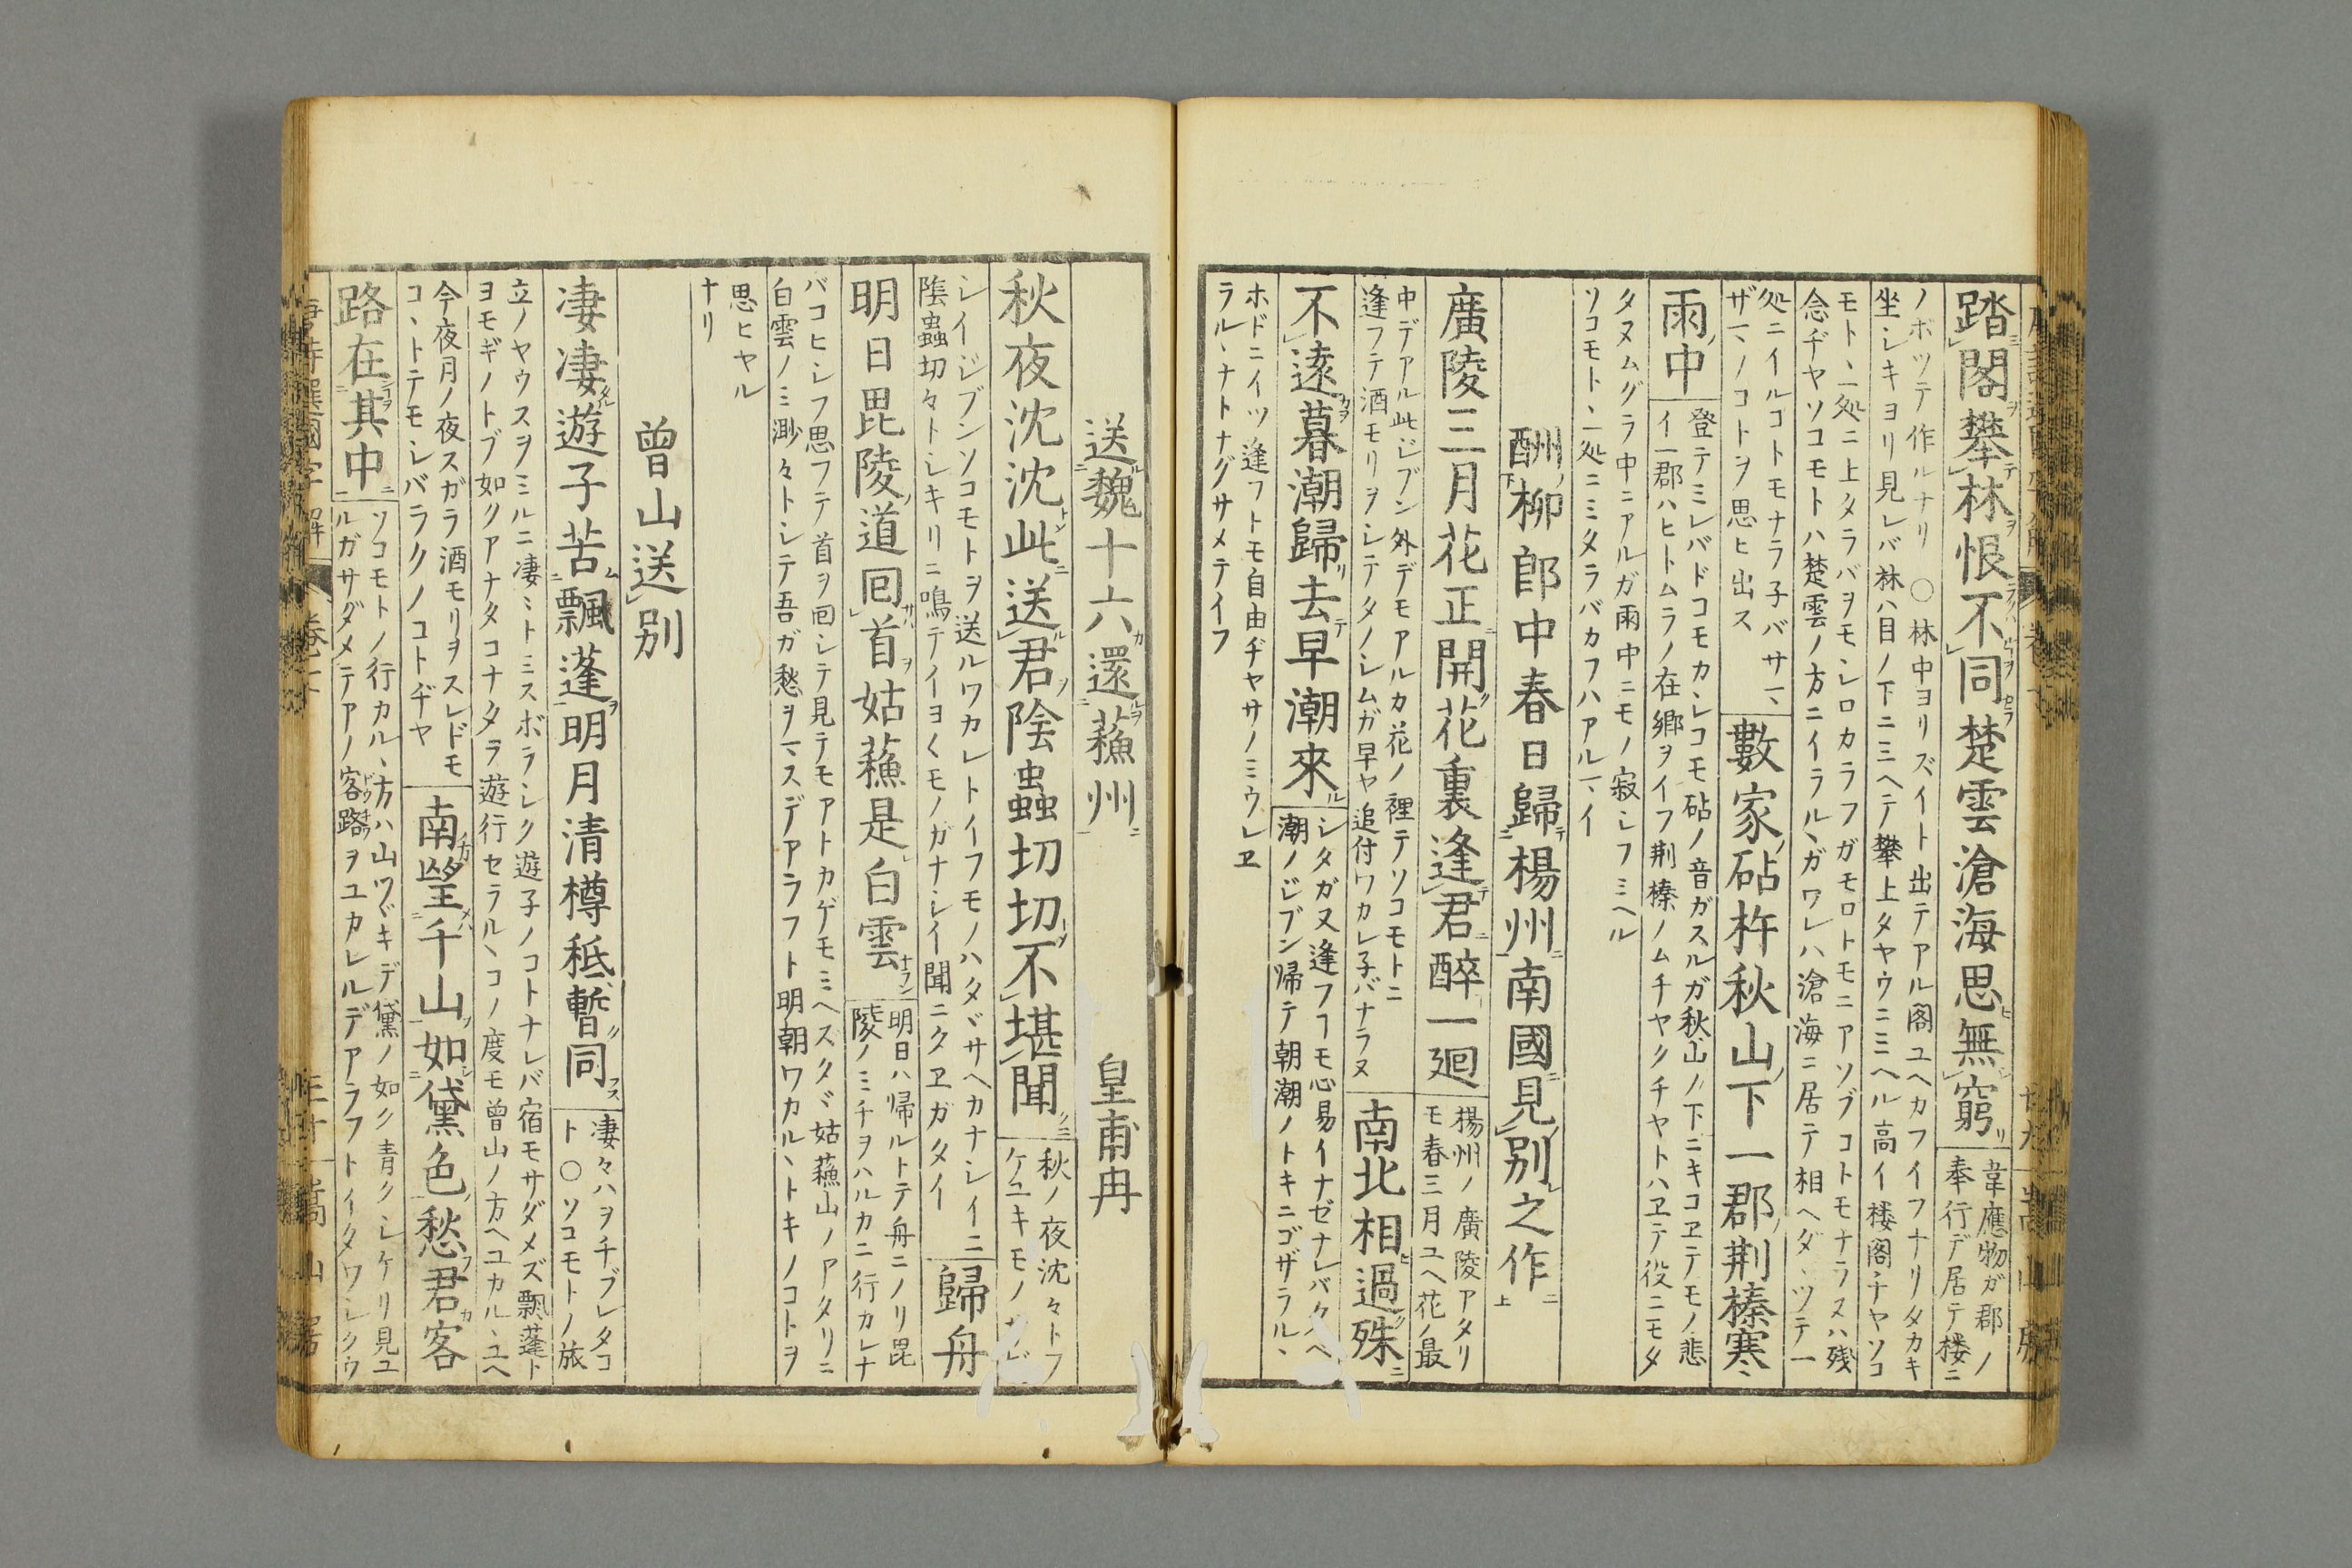 踏閣攀林恨不同楚雲滄海思無窮 韋應物ガ郡ノ奉行デ居テ楼ニ
ノボツテ作ルナリ ○林中ヨリズイト出テアル閣ユヘカフイフナリタカキ
坐シキヨリ見レバ林ハ目ノ下ニミヘテ攀上タヤウニミヘル高イ楼閣ヂヤソコ
モト、一処ニ上タラバヲモシロカラフガモロトモニアソブコトモナラヌハ残
念ヂヤソコモトハ楚雲ノ方ニイラル、ガワレハ滄海ニ居テ相ヘダ、ツテ一
処ニイルコトモナラ子バサマ、
ザマノコトヲ思ヒ出ス
數家砧杵秋山下一郡荆榛寒
雨中 登テミレバドコモカシコモ砧ノ音ガスルガ秋山ノ下ニキコヱテモノ悲
イ一郡ハヒトムラノ在郷ヲイフ荆榛ノムチヤクチヤトハヱテ役ニモタ
タヌムグラ中ニアルガ雨中ニモノ寂シフミヘル
ソコモト、一処ニミタラバカフハアルマイ
酬柳郎中春日歸楊州南國見別之作
廣陵三月花正開花裏逢君醉一廻 楊州ノ廣陵アタリモ春三月ユヘ花ノ最
中デアル此ジブン外デモアルカ花ノ裡テソコモトニ
逢フテ酒モリヲシテタノシムガ早ヤ追付ワカレ子バナラヌ
南北相過殊
不遠暮潮歸去早潮來 シタガ又逢フコモ心易イナゼナレバクヘ
潮ノジブン帰テ朝潮ノトキニゴザラル、
ホドニイツ逢フトモ自由ヂヤサノミウレヱ
ラル、ナトナグサメテイフ
送魏十六還蘓州 皇甫冉
秋夜沈沈此送君陰蟲切切不堪聞 秋ノ夜沈々トフケユキモノサビ
シイジブンソコモトヲ送ルワカレトイフモノハタヾサヘカナシイニ
陰蟲切々トシキリニ鳴テイヨ〱モノガナシイ聞ニクヱガタイ
歸舟
明日毘陵道囘首姑蘓是白雲 明日ハ帰ルトテ舟ニノリ毘陵ノミチヲハルカニ行カレナ
バコヒシフ思フテ首ヲ囘シテ見テモアトカゲモミヘズタヾ姑蘓山ノアタリニ
白雲ノミ渺々トシテ吾ガ愁ヲマスデアラフト明朝ワカル、トキノコトヲ
思ヒヤル
ナリ
曾山送別
凄凄遊子苦飄蓬明月清樽秪暫同 凄々ハヲチブレタコト○ソコモトノ旅
立ノヤウスヲミルニ凄ミトミスボラシク遊子ノコトナレバ宿モサダメズ飄蓬ト
ヨモギノトブ如クアナタコナタヲ遊行セラル、コノ度モ曾山ノ方ヘユカル、ユヘ
今夜月ノ夜スガラ酒モリヲスレドモ
コ、トテモシバラクノコトヂヤ
南望千山如黛色愁君客
路在其中 ソコモトノ行カル、方ハ山ツヾキデ黛ノ如ク青クシケリ見ユ
ルガサダメテアノ客路ヲユカレルデアラフトイタワシクウ
唐詩選國字解 巻下 嵩山房